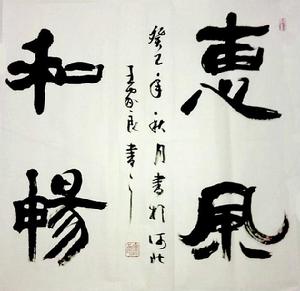 惠風
和暢
癸巳年秋月書於河北
王良書